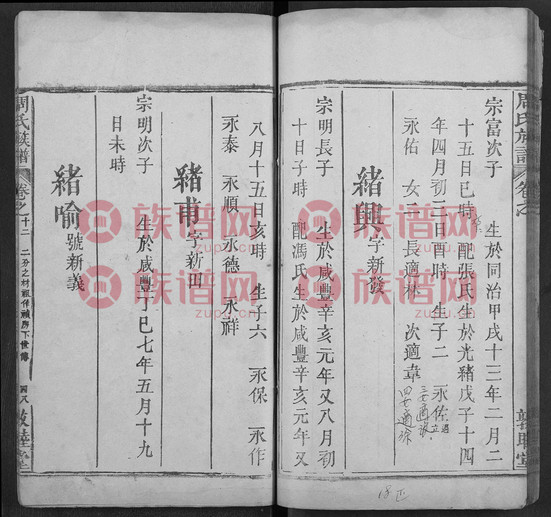 周氏族譜 卷之
宗富次子 生於同治甲戌十三年二月二
十五日巳時 配張氏生於光緒戊子十四
年四月初三日酉時 生子二 永佐
永佑 女二 長適 次適韋
三女適
四女適
緒興字新發
宗明長子 生於咸豐辛亥元年又八月初
十日子時 配馮氏生於咸豐辛亥元年又
敦睦堂
八月十五日亥時 生子六 永保 永作
永泰 永順 永德 永祥
緒甫字新田
宗明次子 生於咸豐丁巳七年五月十九
日未時
緒喻號新義
周氏族譜 卷之十二 敦睦堂
族谱网
zupu.cn
族谱网
zupu.cn
族谱网
zupu.cn
族谱网
zupu.cn